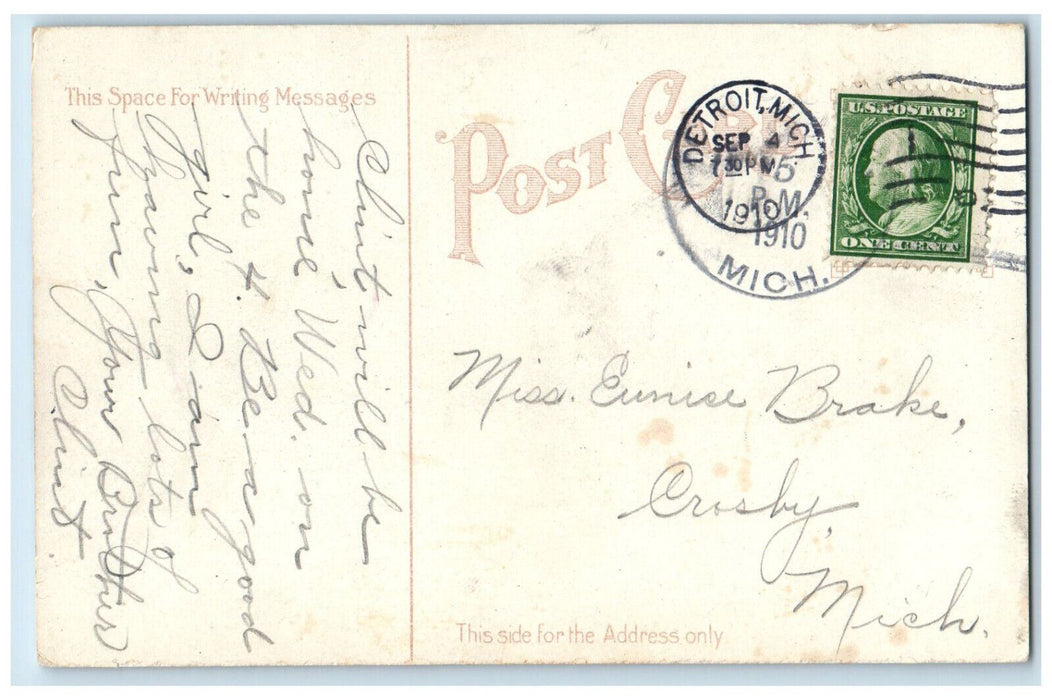 This Space For Writing Messages
POST CARD
DETROIT, MICH.
SEP 4
7 30 PM
1910
5
P.M.
1910
MICH.
U.S. POSTAGE
ONE CENT
Clint will be
home Wed. or
the 4. Be a good
girl, I am
having lots of
fun, Your Brother
Clint.
Miss. Eunise Brake,
Crosby,
Mich.
This side for the Address only